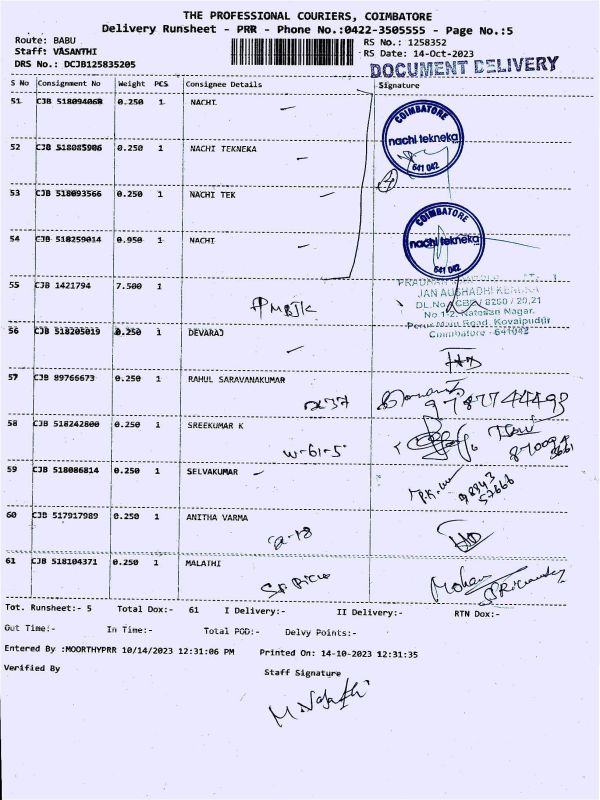 THE PROFESSIONAL COURIERS, COIMBATORE
Delivery Runsheet - PRR - Phone No.:0422-3505555 - Page No.:5
Route: BABU
RS No.: 1258352
Staff: VASANTHI
RS Date: 14-Oct-2023
DRS No.: DCJB125835205
DOCUMENT DELIVERY
S No Consignment No Weight PCS Consignee Details Signature
51 CJB 518094068 0.250 1 NACHI
COIMBATORE
nachi tekneka
641 042
52 CJB 518085906 0.250 1 NACHI TEKNEKA
53 CJB 518093566 0.250 1 NACHI TEK
54 CJB 518259014 0.950 1 NACHI
COIMBATORE
nachi tekneka
641 042
55 CJB 1421794 7.500 1
PMBJK
JAN AUSHADHI KENDRA
Coimbatore - 641042
56 CJB 513205019 0.250 1 DEVARAJ
57 CJB 89766673 0.250 1 RAHUL SARAVANAKUMAR
9787744493
58 CJB 518242800 0.250 1 SREEKUMAR K
W-61-5
59 CJB 518086814 0.250 1 SELVAKUMAR
98943
57666
60 CJB 517917989 0.250 1 ANITHA VARMA
61 CJB 518104371 0.250 1 MALATHI
Mohan
Tot. Runsheet:- 5 Total Dox:- 61 I Delivery:- II Delivery:- RTN Dox:-
Out Time:- In Time:- Total POD:- Delvy Points:-
Entered By :MOORTHYPRR 10/14/2023 12:31:06 PM Printed On: 14-10-2023 12:31:35
Verified By Staff Signature